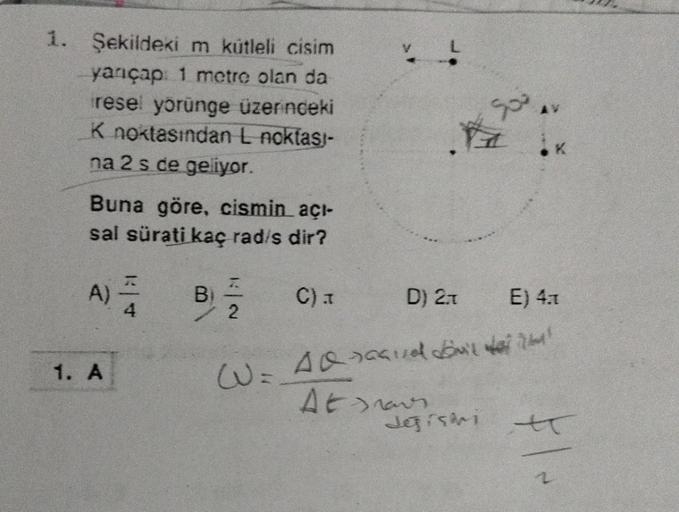 1. Şekildeki m kütleli cisim
yarıçapı 1 metre olan da
iresel yörünge üzerindeki
K noktasından L noktası-
na 2 s de geliyor.
Buna göre, cismin açı-
sal sürati kaç rad/s dir?
V L
90°
V
K
A) π/4 B) π/2 C) π D) 2π E) 4π
1. A
ω = Δθ → açısal
Δt →
değişimi
π/2